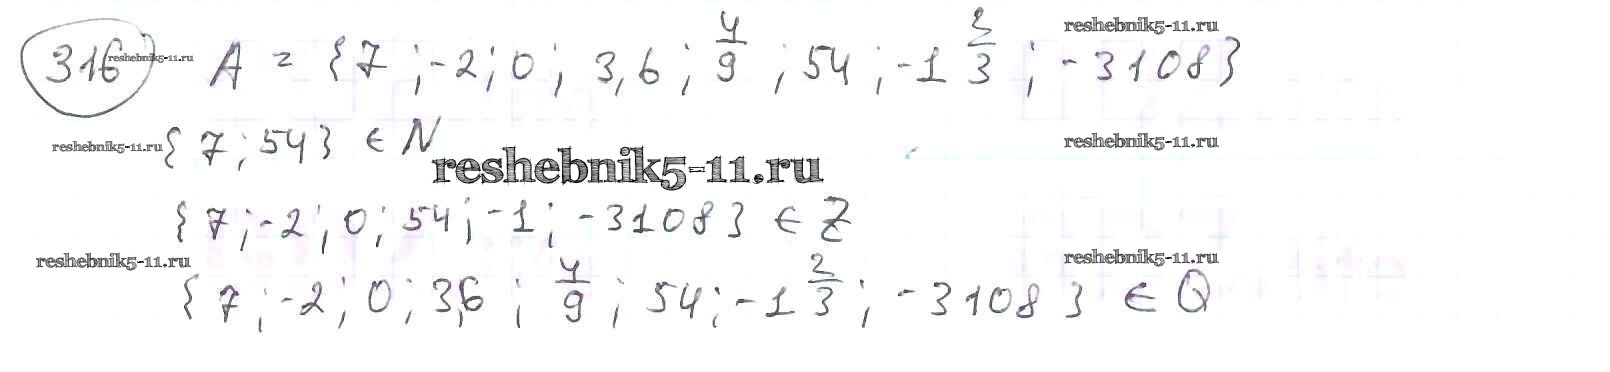 reshebnik5-11.ru
316 reshebnik5-11.ru A = {7 ; -2 ; 0 ; 3,6 ; 4/9 ; 54 ; -1 2/3 ; -3108}
reshebnik5-11.ru {7 ; 54} ∈ N reshebnik5-11.ru
reshebnik5-11.ru
{7 ; -2 ; 0 ; 54 ; -1 ; -3108} ∈ Z
reshebnik5-11.ru reshebnik5-11.ru
{7 ; -2 ; 0 ; 3,6 ; 4/9 ; 54 ; -1 2/3 ; -3108} ∈ Q